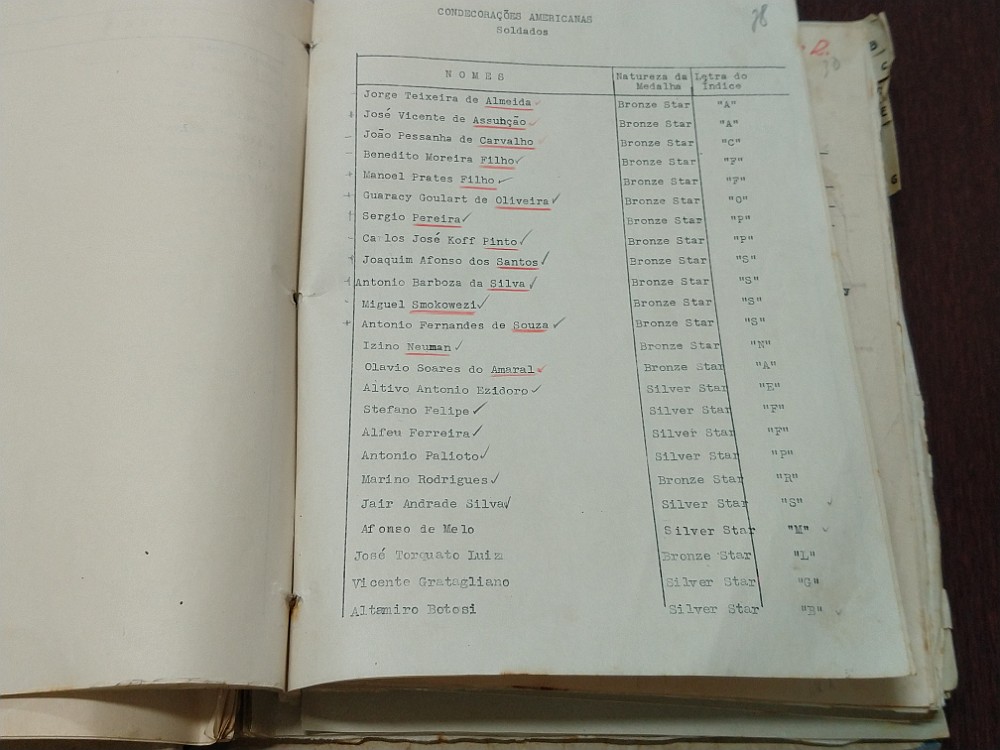 CONDECORAÇÕES AMERICANAS
Soldados
28
NOMES Natureza da Medalha Letra do Índice
Jorge Teixeira de Almeida Bronze Star "A"
José Vicente de Assunção Bronze Star "A"
João Pessanha de Carvalho Bronze Star "C"
Benedito Moreira Filho Bronze Star "F"
Manoel Prates Filho Bronze Star "F"
Guaracy Goulart de Oliveira Bronze Star "O"
Sergio Pereira Bronze Star "P"
Carlos José Koff Pinto Bronze Star "P"
Joaquim Afonso dos Santos Bronze Star "S"
Antonio Barboza da Silva Bronze Star "S"
Miguel Smokowezi Bronze Star "S"
Antonio Fernandes de Souza Bronze Star "S"
Izino Neuman Bronze Star "N"
Olavio Soares do Amaral Bronze Star "A"
Altivo Antonio Ezidoro Silver Star "E"
Stefano Felipe Silver Star "F"
Alfeu Ferreira Silver Star "F"
Antonio Palioto Silver Star "P"
Marino Rodrigues Bronze Star "R"
Jair Andrade Silva Silver Star "S"
Afonso de Melo Silver Star "M"
José Torquato Luiz Bronze Star "L"
Vicente Gratagliano Silver Star "G"
Altamiro Botosi Silver Star "B"